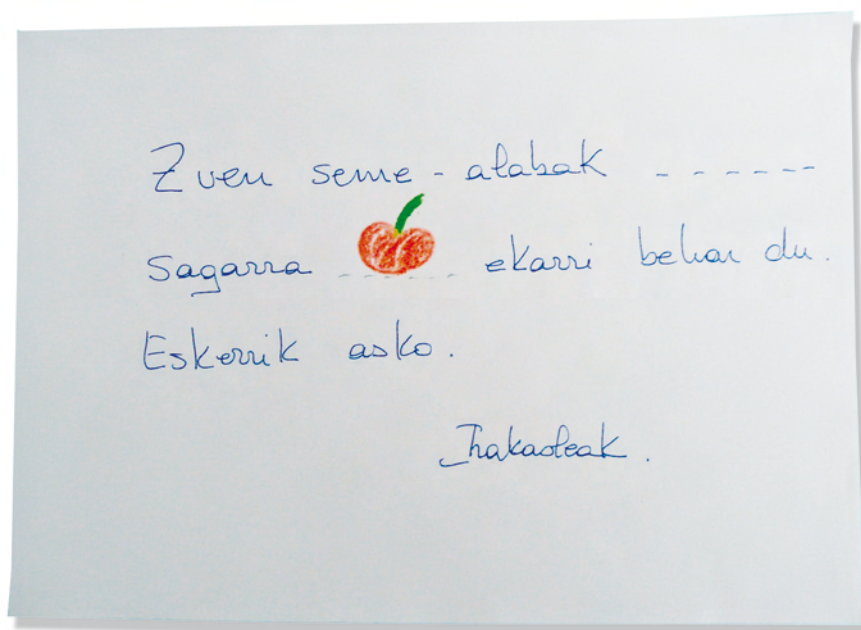 Zuen seme-alabak ------
sagarra ------ ekarri behar du.
Eskerrik asko.
Irakasleak.